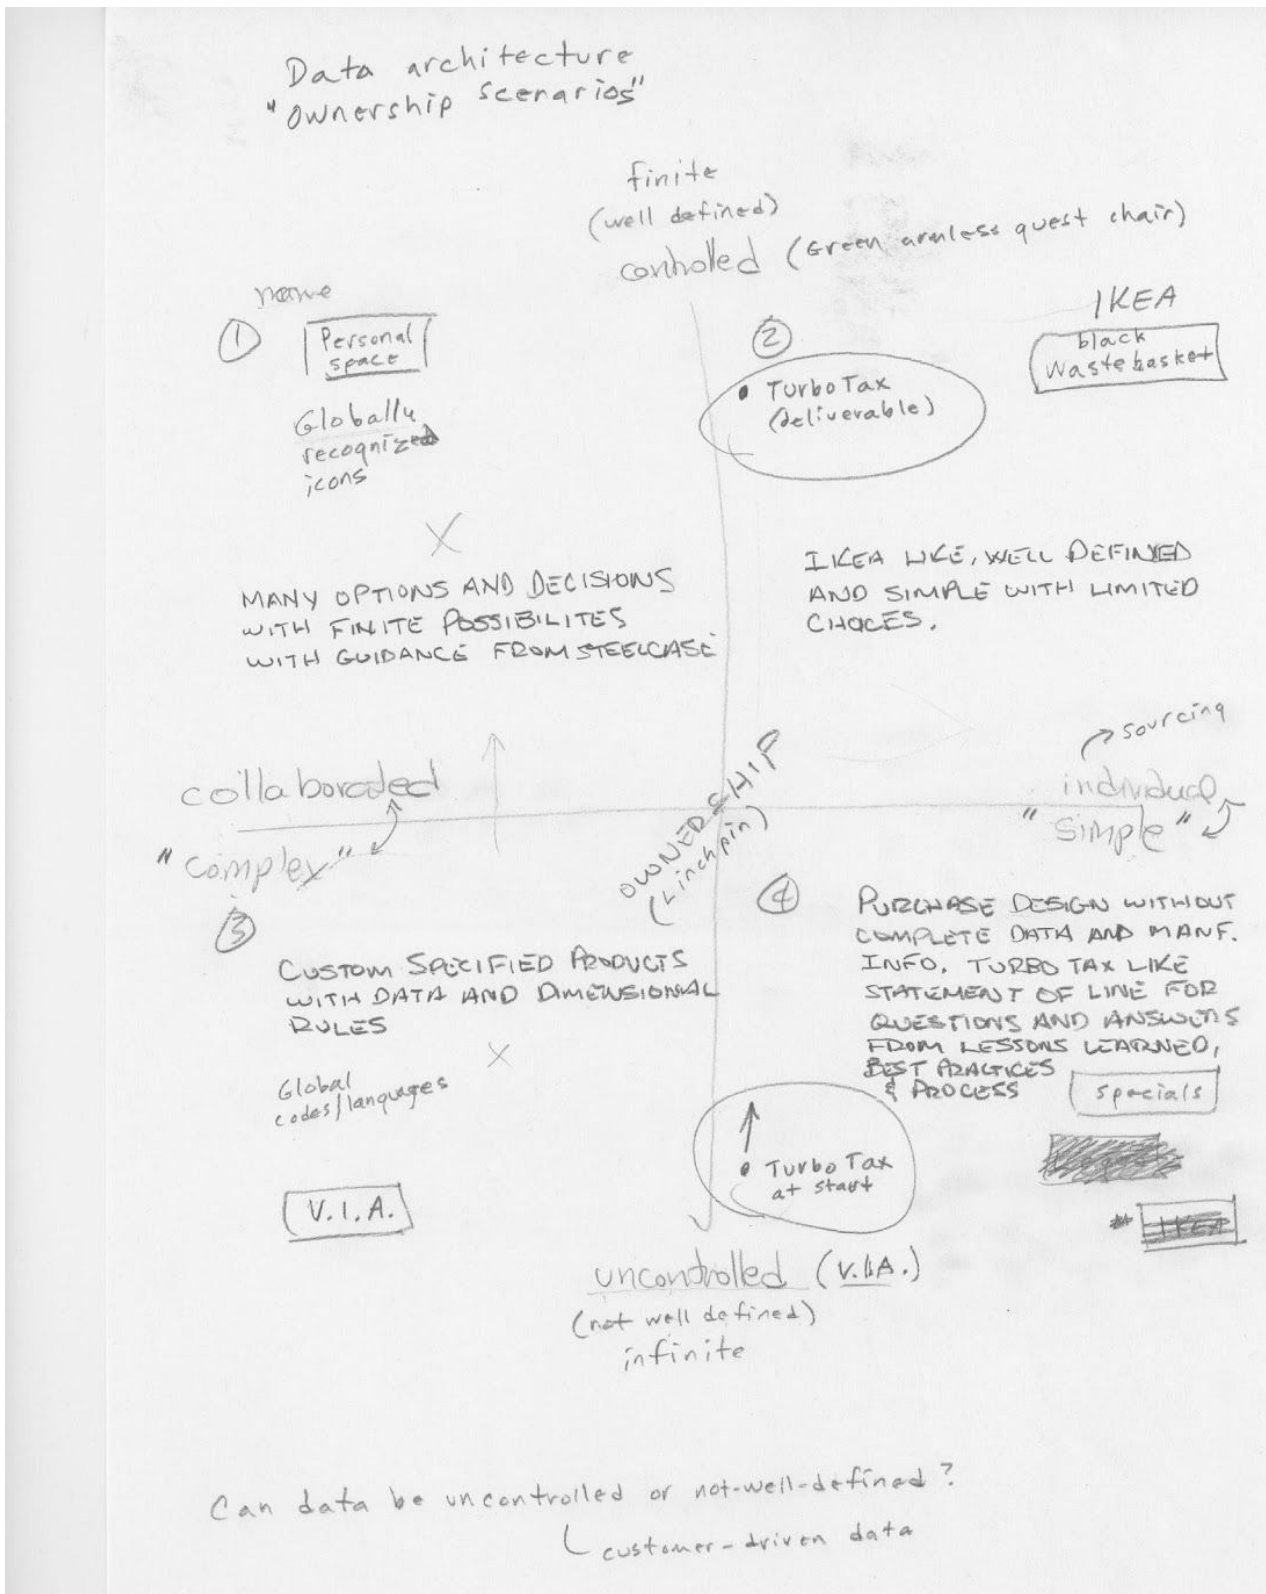 Data architecture
"Ownership scenarios"
finite
(well defined)
controlled (Green armless guest chair)
name
①
Personal
space
Globally
recognized
icons
X
MANY OPTIONS AND DECISIONS
WITH FINITE POSSIBILITES
WITH GUIDANCE FROM STEELCASE
②
• TurboTax
(deliverable)
IKEA
black
Wastebasket
IKEA LIKE, WELL DEFINED
AND SIMPLE WITH LIMITED
CHOICES.
sourcing
collaborated
"complex"
OWNERSHIP
(Linchpin)
individual
"simple"
③
CUSTOM SPECIFIED PRODUCTS
WITH DATA AND DIMENSIONAL
RULES
X
Global
codes/languages
V.I.A.
④
PURCHASE DESIGN WITHOUT
COMPLETE DATA AND MANF.
INFO. TURBO TAX LIKE
STATEMENT OF LINE FOR
QUESTIONS AND ANSWERS
FROM LESSONS LEARNED,
BEST PRACTICES
& PROCESS
specials
• TurboTax
at start
* IKEA
uncontrolled (V.I.A.)
(not well defined)
infinite
Can data be uncontrolled or not-well-defined?
customer-driven data